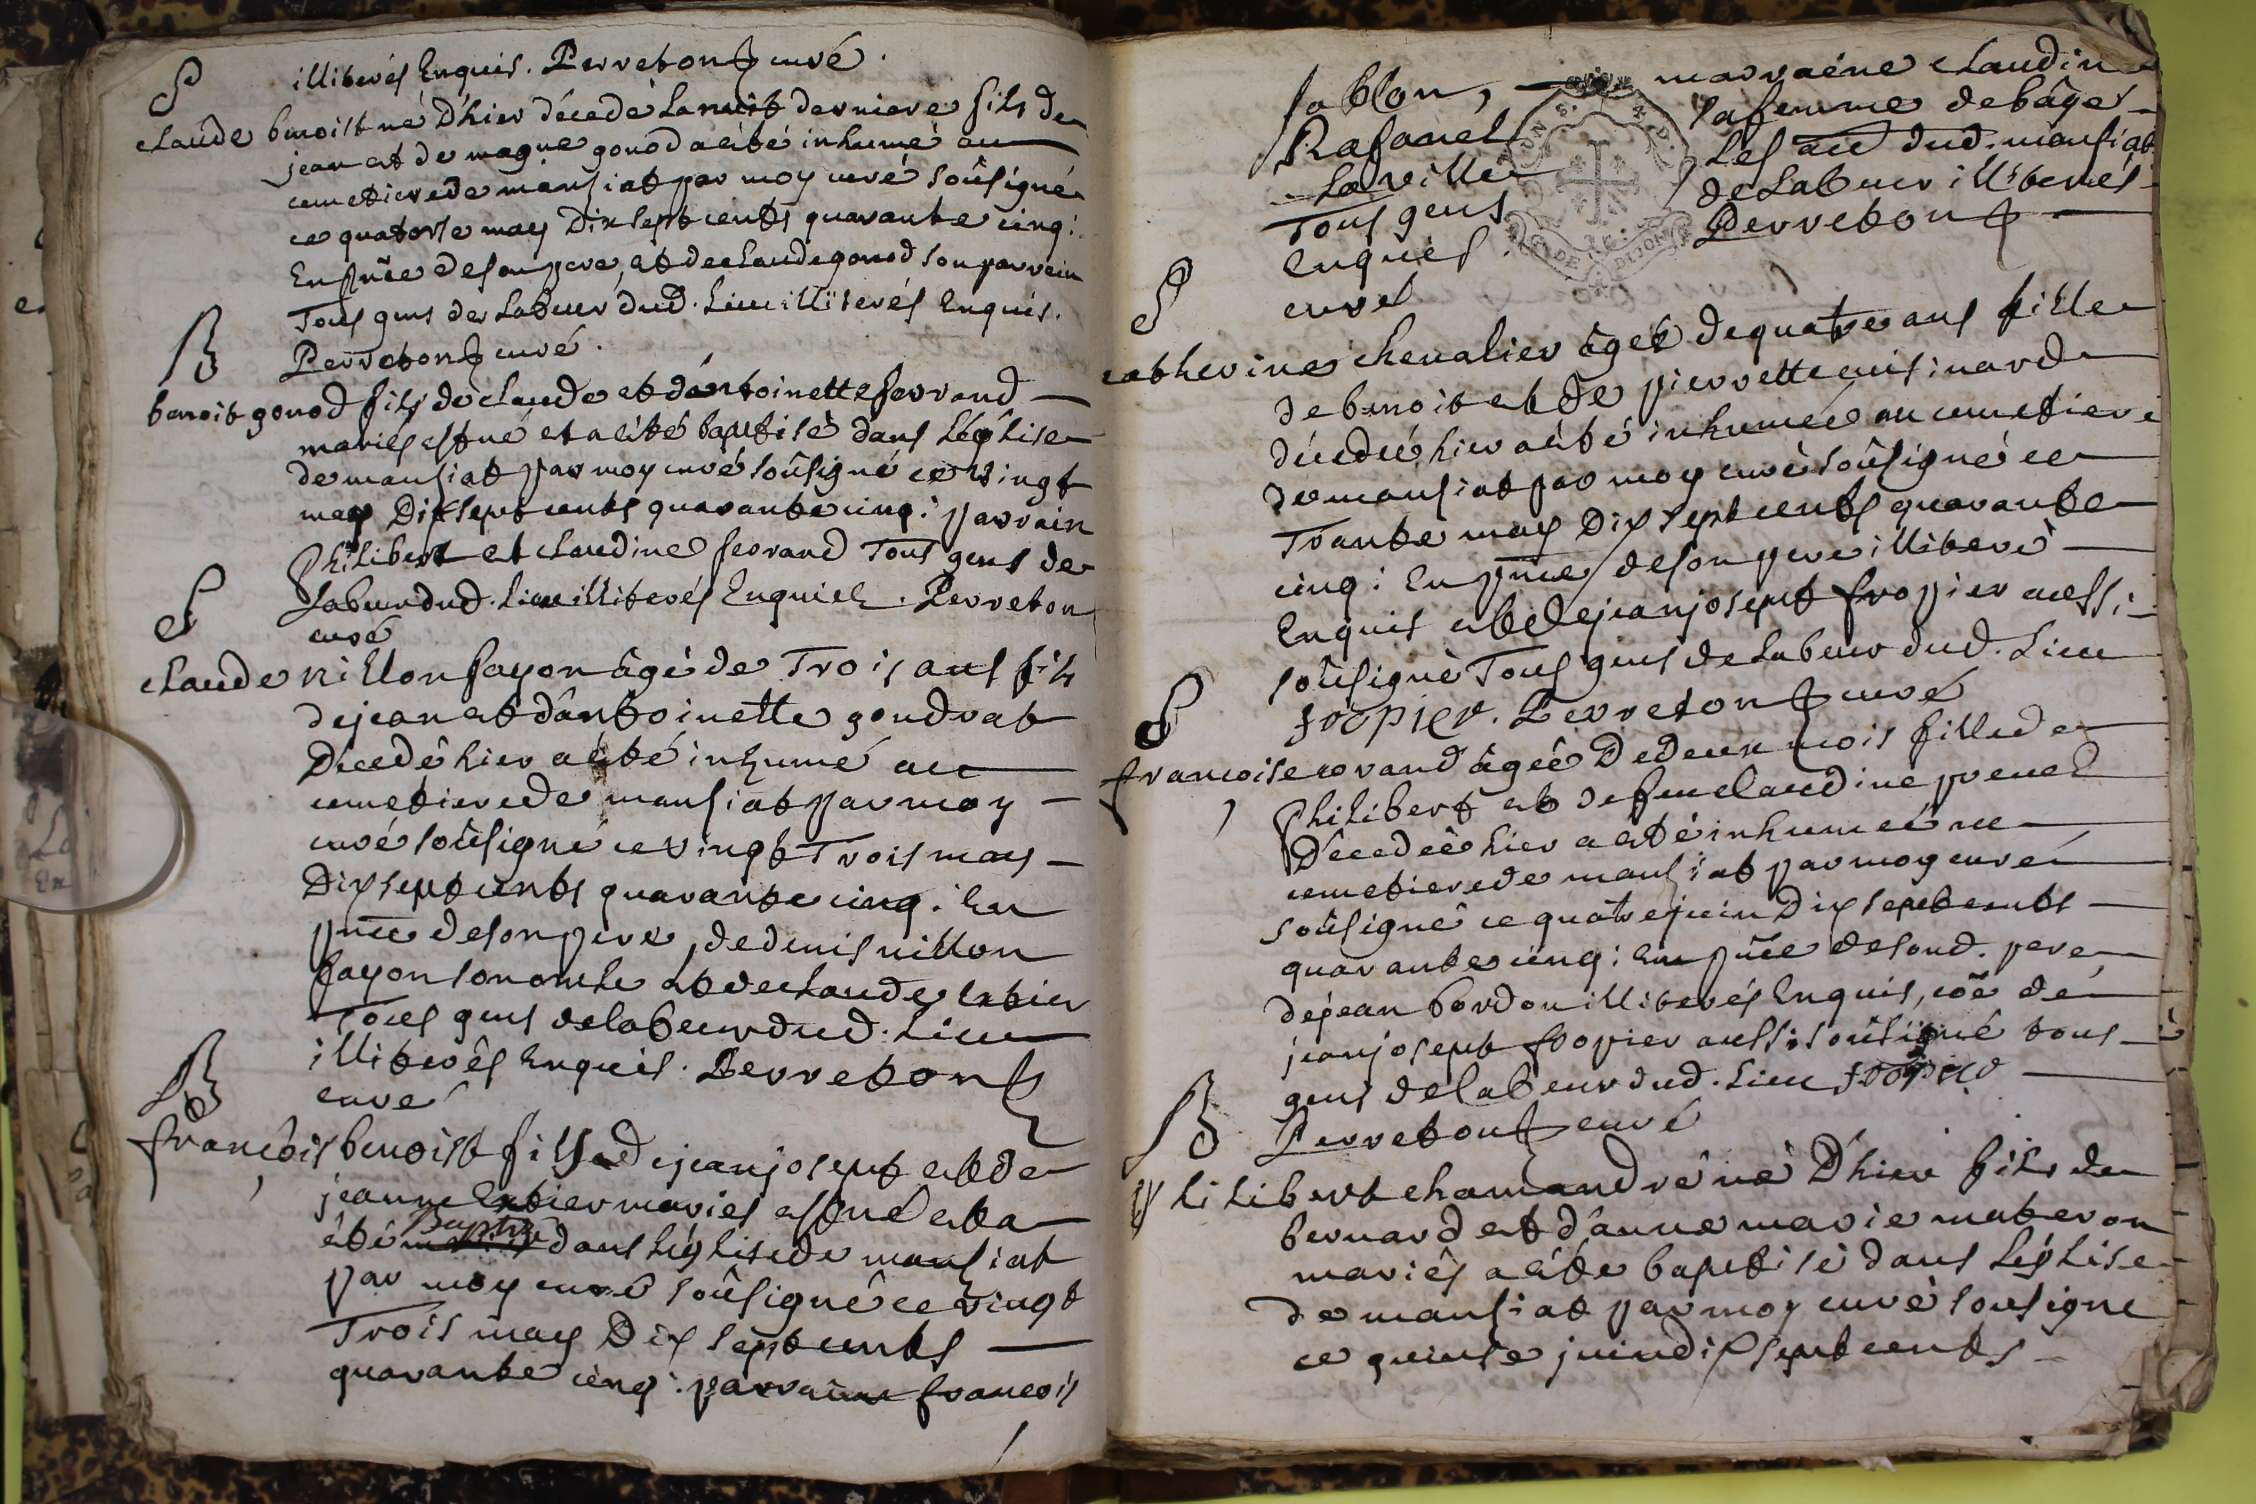 illiterés Enquis. Perreton curé.
S
claude benoist né D'hier décedé La nuit derniere fils de
jean et de magne gonod a eité inhumé au
cemetiere de mansiat par moy curé soûsigné
ce quatorse may Dix sept cents quarante cinq:
En pnce de son pere, et de claude gonod son parrein
Tous gens de Labeur dud. Lieu illiterés Enquis.
Perreton curé.
B
benoit gonod fils de claude et d'antoinette ferrand
mariés est né et a eité baptisé dans Léglise
de mansiat par moy curé soûsigné ce vingt
may Dix sept cents quarante cinq: parrain
Philibert et claudine ferrand Tous gens de
Labeur dud. Lieu illiterés Enquis. Perreton
curé
S
claude nillon fayon âgé de Trois ans fils
de jean et d'ântoinette goudrat
Décedé hier a eité inhumé au
cemetiere de mansiat par moy
curé soûsigné ce vingt Trois may
Dix sept cents quarante cinq: En
pnce de son pere, de denis nillon
fayon son oncle et de claude
Tous gens de labeur dud. Lieu
illiterés Enquis. Perreton
curé
B
françois benoist fils de jean josept et de
jeanne mariés est né et a
été Baptisé dans Léglise de mansiat
par moy curé soûsigné ce vingt
Trois may Dix sept cents
quarante cinq: parrain françois
Sablon, marraine claudine
Rafanel sa femme de bâgé
La ville Les au dud. mansiat
Tous gens de Labeur illiterés
Enquis. Perreton
curé
S
catherine chevalier âgée de quatre ans fille
de benoit et de pierrette cuisinard
décedée hier a eité inhumée au cemetiere
de mansiat par moy curé soûsigné ce
Trante may Dix sept cents quarante
cinq: En pnce de son pere illiteré
Enquis et de jean josept fropier aussi
soûsigné Tous gens de Labeur dud. Lieu
fropier. Perreton curé
S
françoise corand âgée De deux mois fille de
philibert et de feue claudine prevel
Décedée hier a eité inhumée au
cemetiere de mansiat par moy curé
soûsigné ce quatre juin Dix sept cents
quarante cinq: En pnce de sond. pere
de jean bordon illiterés Enquis, et de
jean josept fropier aussi soûsigné tous
gens de labeur dud. Lieu fropier
Perreton curé
B
philibert chamandré né D'hier fils de
bernard et d'anne marie materon
mariés a eité baptisé dans Léglise
de mansiat par moy curé sousigné
ce quinse juin dix sept cents